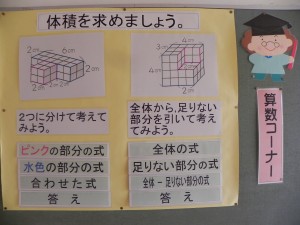 体積を求めましょう。
2cm
6cm
2cm
2cm
3cm
4cm
4cm
2つに分けて考えて
みよう。
全体から、足りない
部分を引いて考え
てみよう。
ピンクの部分の式
水色の部分の式
合わせた式
答え
全体の式
足りない部分の式
全体－足りない部分の式
答え
算数コーナー